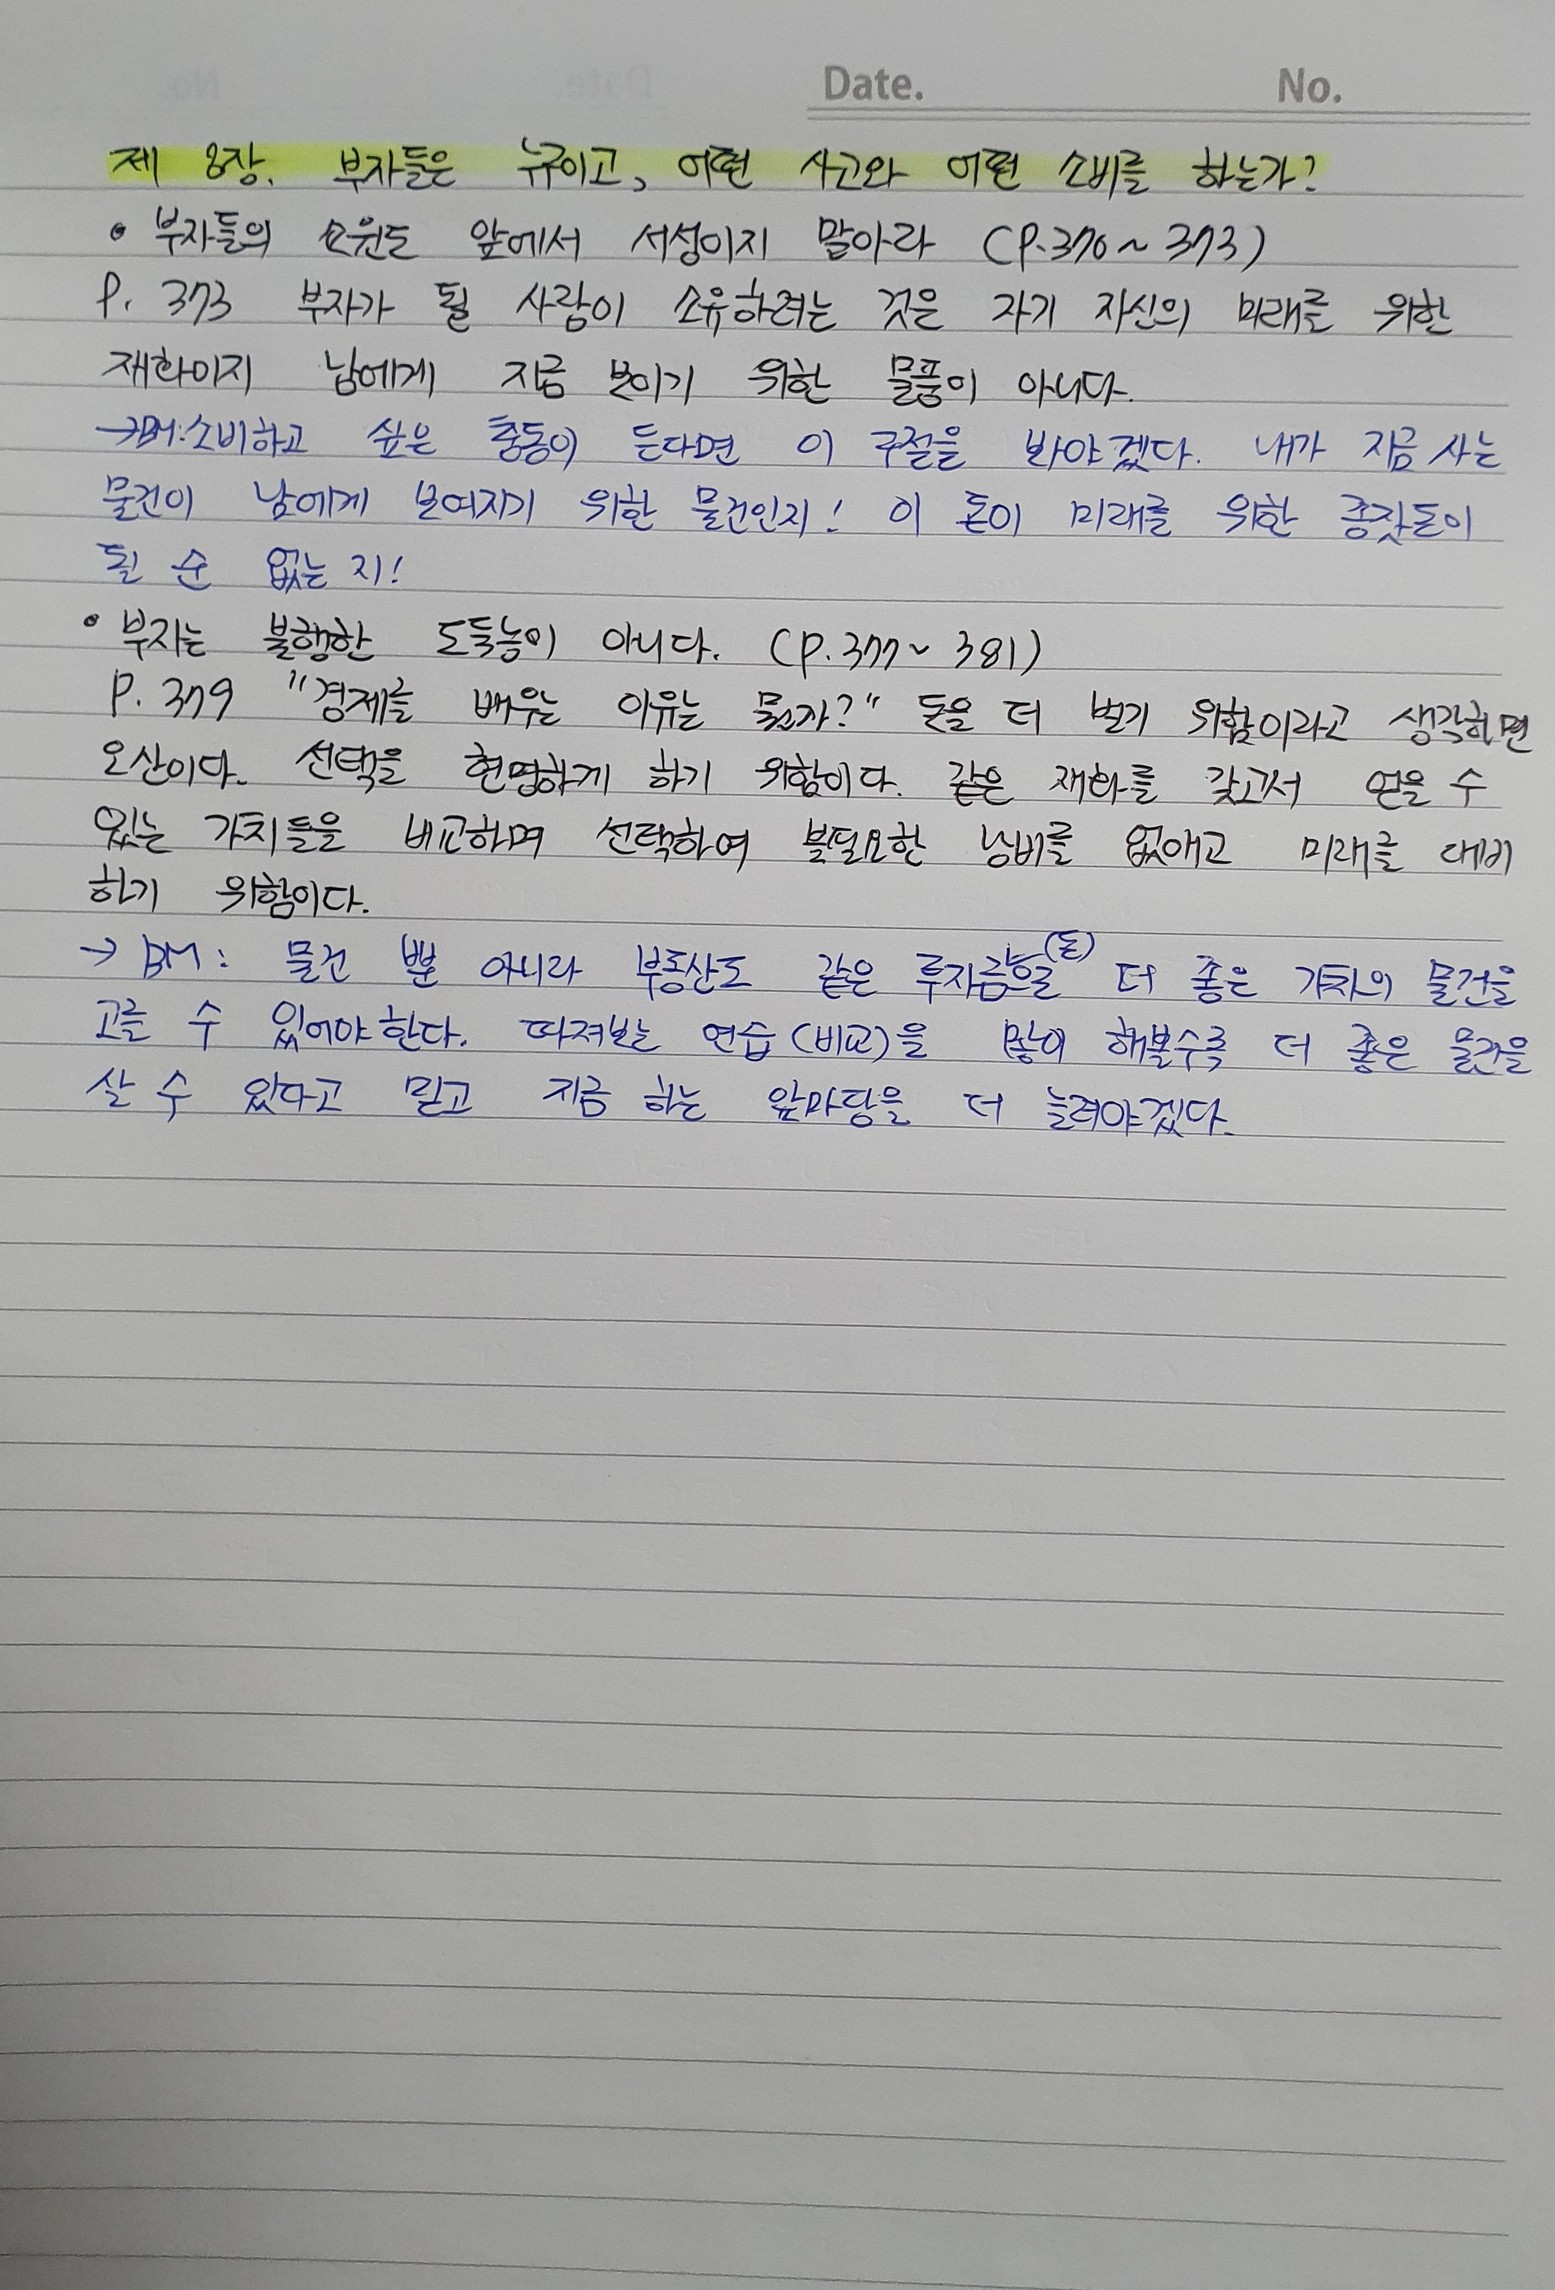 Date. No.
제 8장. 부자들은 누구이고, 어떤 사고와 어떤 소비를 하는가?
• 부자들의 쇼윈도 앞에서 서성이지 말아라 (P.370~373)
P. 373 부자가 될 사람이 소유하려는 것은 자기 자신의 미래를 위한
재화이지 남에게 지금 보이기 위한 물품이 아니다.
→BM:소비하고 싶은 충동이 든다면 이 구절을 봐야겠다. 내가 지금 사는
물건이 남에게 보여지기 위한 물건인지! 이 돈이 미래를 위한 종잣돈이
될 순 없는 지!
• 부자는 불행한 도둑놈이 아니다. (P.377~381)
P. 379 "경제를 배우는 이유는 뭔가?" 돈을 더 벌기 위함이라고 생각하면
오산이다. 선택을 현명하게 하기 위함이다. 같은 재화를 갖고서 얻을 수
있는 가치들을 비교하며 선택하여 불필요한 낭비를 없애고 미래를 대비
하기 위함이다.
→ BM: 물건 뿐 아니라 부동산도 같은 투자금(돈)으로 더 좋은 가치의 물건을
고를 수 있어야한다. 따져보는 연습(비교)을 많이 해볼수록 더 좋은 물건을
살 수 있다고 믿고 지금 하는 앞마당을 더 늘려야겠다.